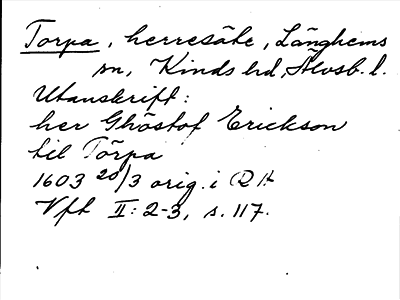 Torpa, herresäte, Länghems
sn, Kinds hd, Älvsb. l.
Utanskrift:
her Ghöstof Erickson
til Törpa
1603 20/3 orig. i RA
Vft II: 2-3, s. 117.